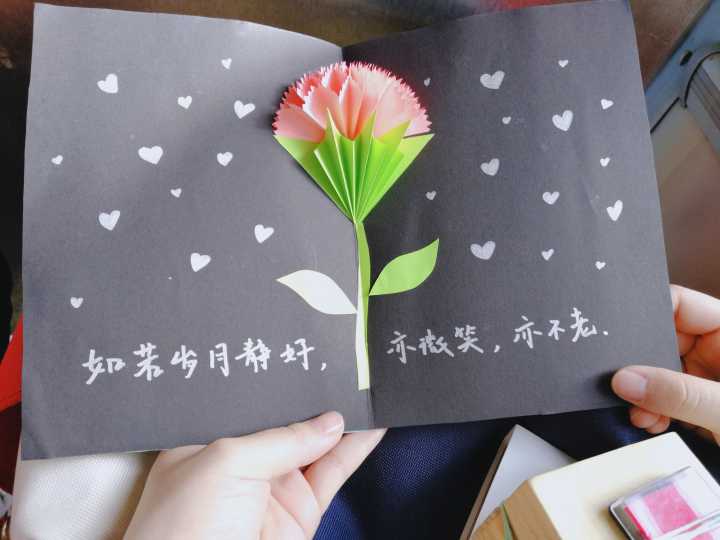 如若岁月静好，亦微笑，亦不老.